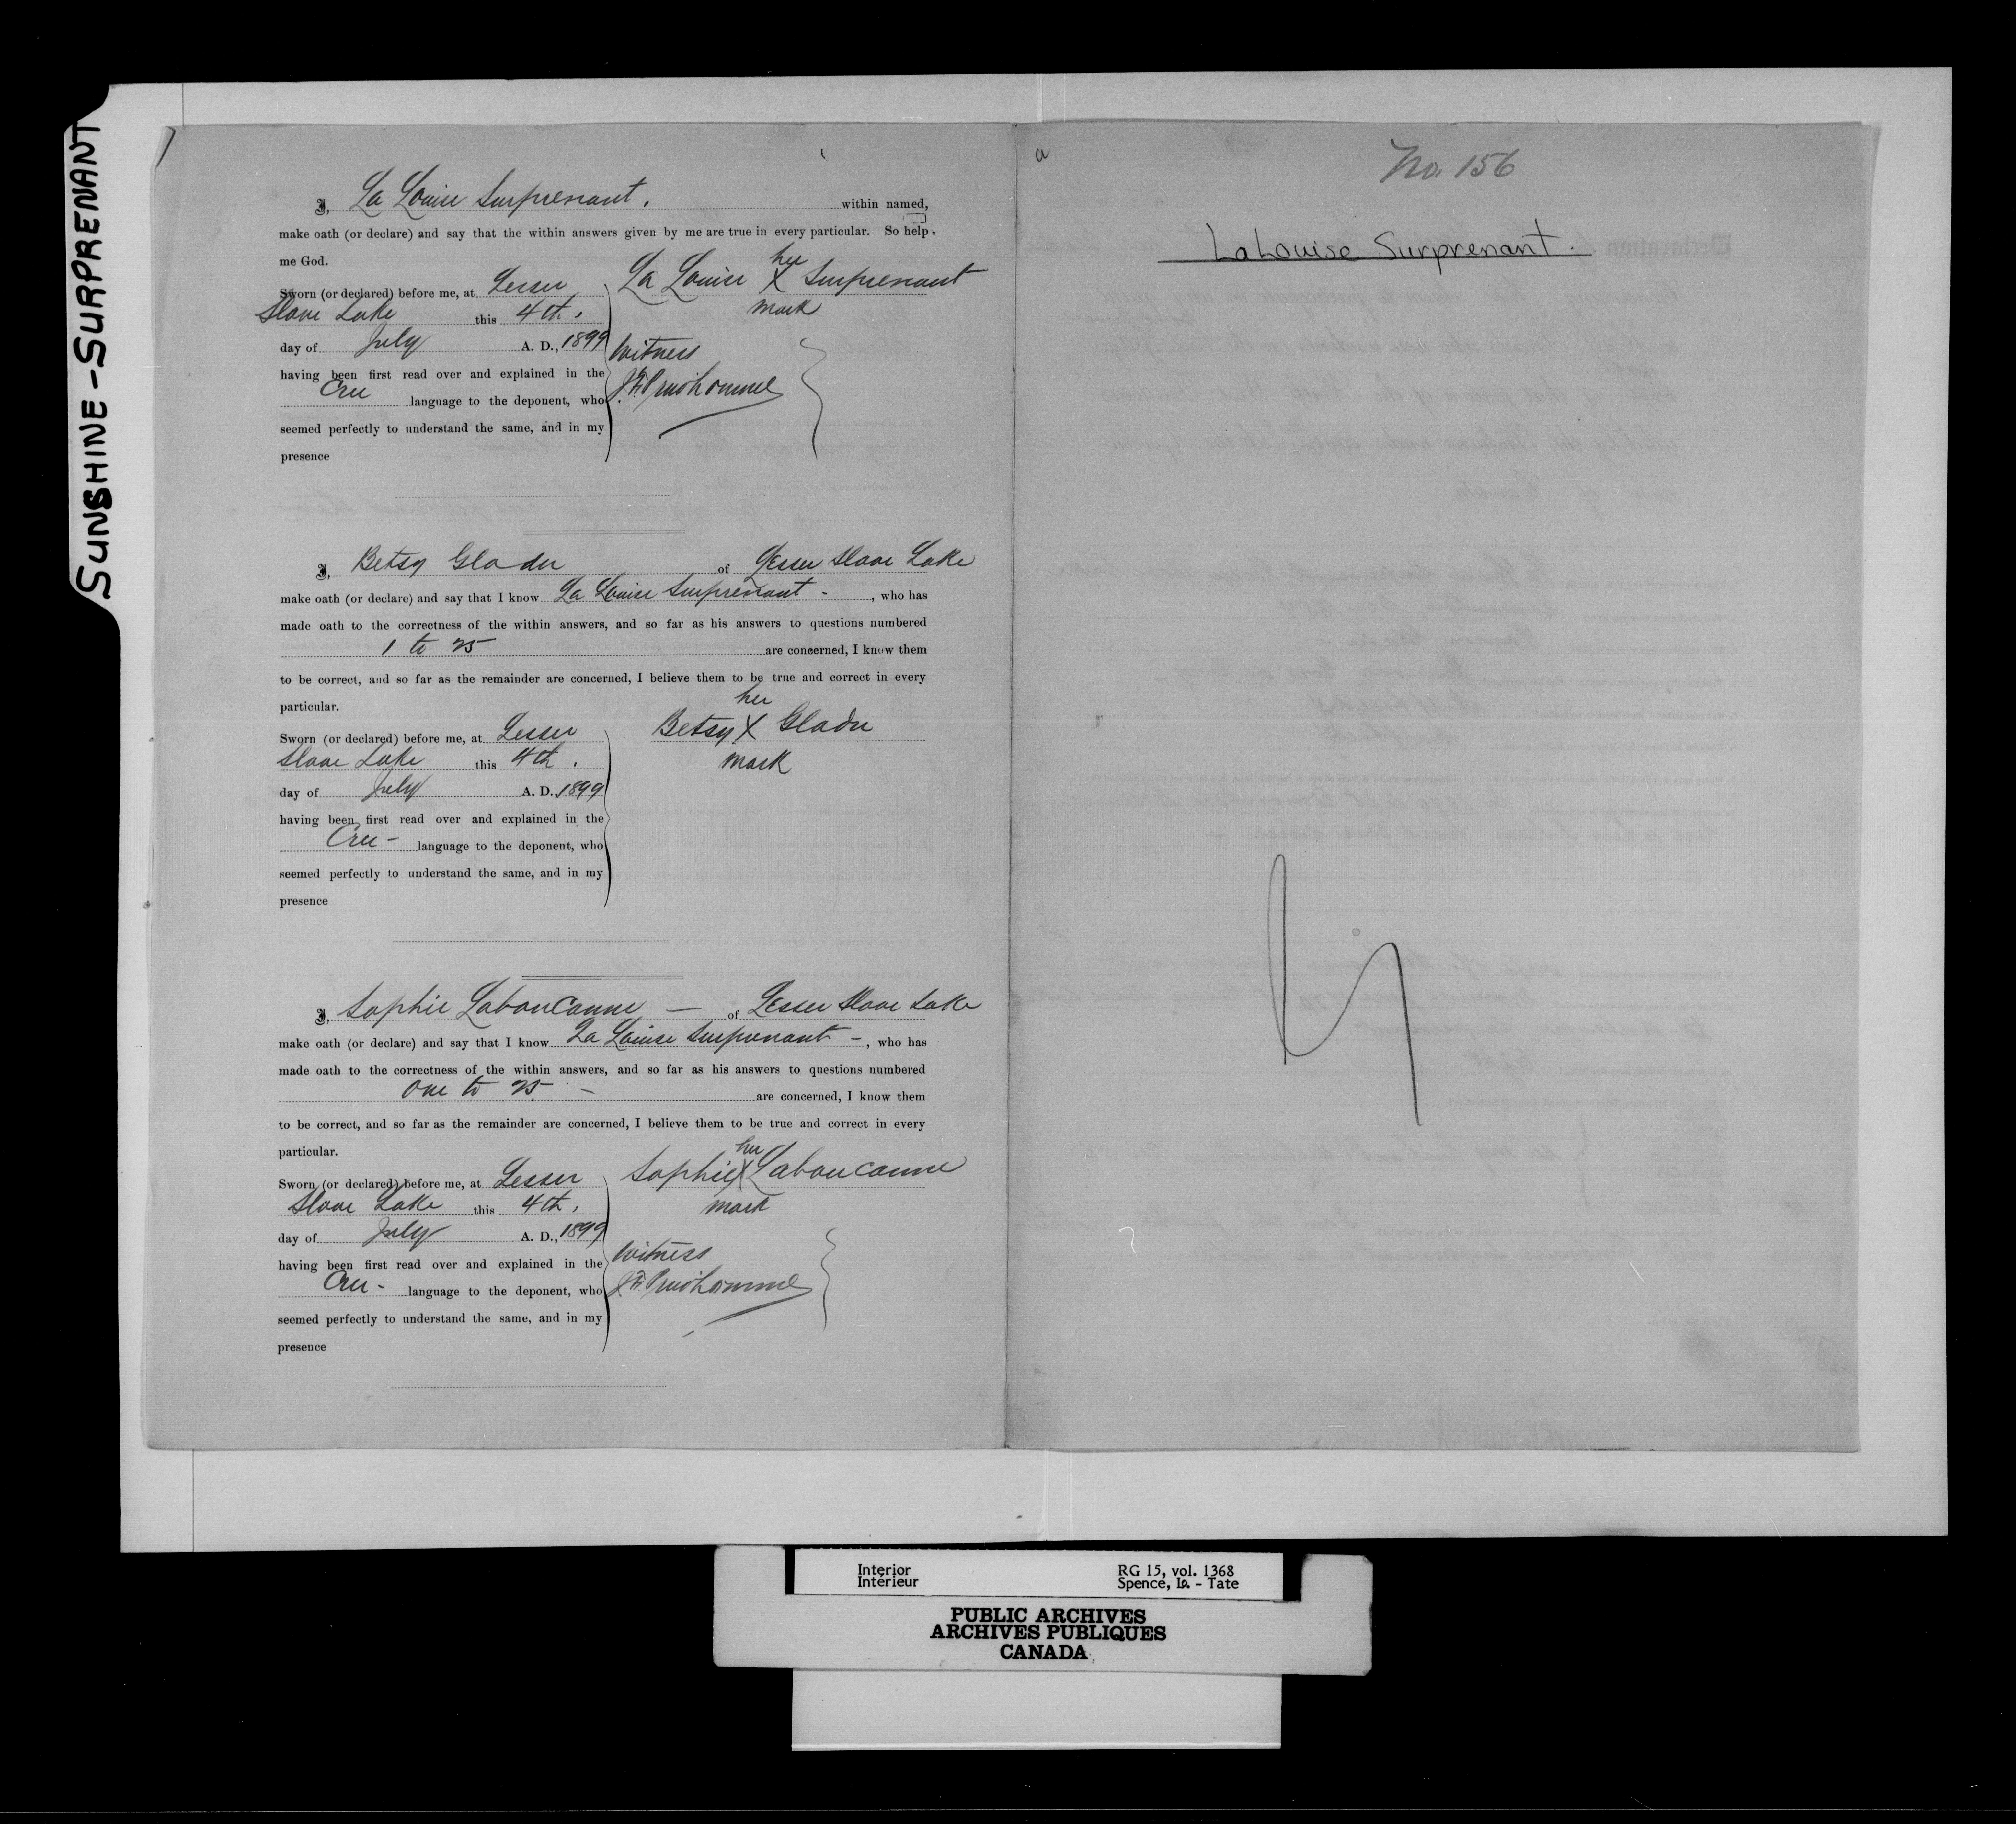 SUNSHINE-SURPRENANT
I, La Louise Surprenant. within named,
make oath (or declare) and say that the within answers given by me are true in every particular. So help
me God.
Sworn (or declared) before me, at Lesser
Slave Lake this 4th.
day of July A. D., 1899
having been first read over and explained in the
Cree language to the deponent, who
seemed perfectly to understand the same, and in my
presence
her
La Louise X Surprenant
mark
Witness
J.F. Prudhomme
I, Betsy Gladu of Lesser Slave Lake
make oath (or declare) and say that I know La Louise Surprenant - , who has
made oath to the correctness of the within answers, and so far as his answers to questions numbered
1 to 25 are concerned, I know them
to be correct, and so far as the remainder are concerned, I believe them to be true and correct in every
particular.
Sworn (or declared) before me, at Lesser
Slave Lake this 4th.
day of July A. D. 1899
having been first read over and explained in the
Cree - language to the deponent, who
seemed perfectly to understand the same, and in my
presence
her
Betsy X Gladu
mark
I, Sophie Laboucanne - of Lesser Slave Lake
make oath (or declare) and say that I know La Louise Surprenant - , who has
made oath to the correctness of the within answers, and so far as his answers to questions numbered
One to 25 - are concerned, I know them
to be correct, and so far as the remainder are concerned, I believe them to be true and correct in every
particular.
Sworn (or declared) before me, at Lesser
Slave Lake this 4th.
day of July A. D., 1899
having been first read over and explained in the
Cree - language to the deponent, who
seemed perfectly to understand the same, and in my
presence
her
Sophie X Laboucanne
mark
Witness
J.F. Prudhomme
No. 156
LaLouise Surprenant.
Interior
Intérieur
RG 15, vol. 1368
Spence, Ia. - Tate
PUBLIC ARCHIVES
ARCHIVES PUBLIQUES
CANADA